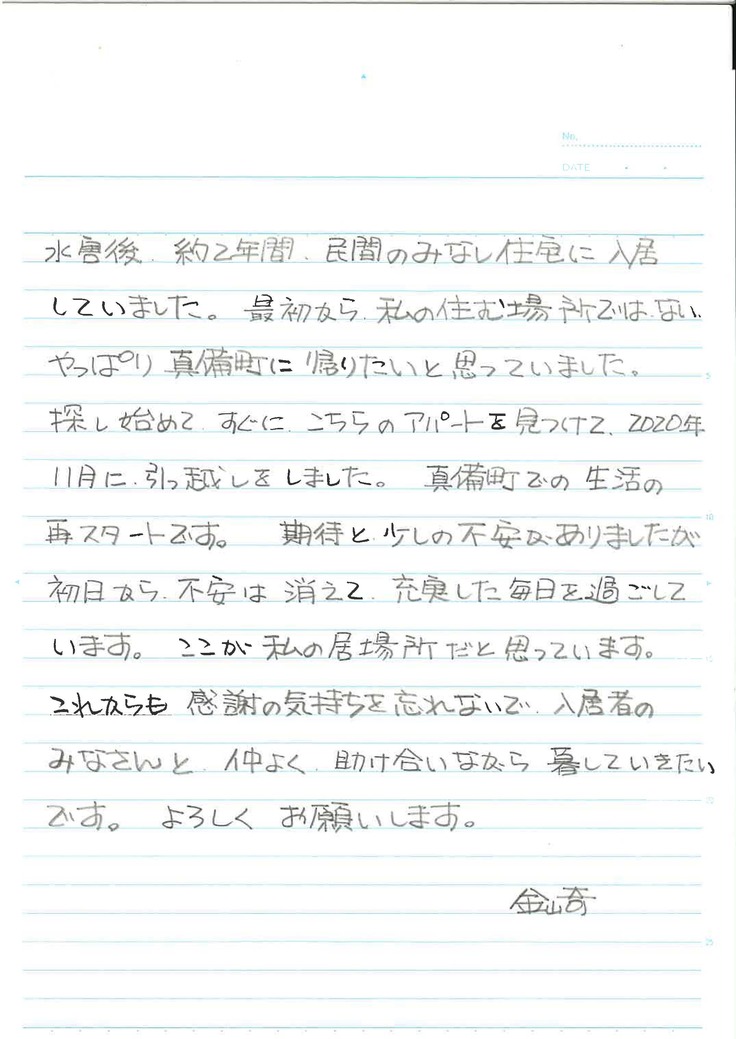 No.
DATE
水害後、約2年間、民間のみなし住宅に入居
していました。 最初から、私の住む場所ではない、
やっぱり真備町に帰りたいと思っていました。
探し始めて、すぐに、こちらのアパートを見つけて、2020年
11月に、引っ越しをしました。 真備町での生活の
再スタートです。 期待と、少しの不安がありましたが
初日から、不安は消えて、充実した毎日を過ごして
います。 ここが私の居場所だと思っています。
これからも感謝の気持ちを忘れないで、入居者の
みなさんと、仲よく、助け合いながら暮していきたい
です。 よろしくお願いします。
金山奇
5
10
15
20
25